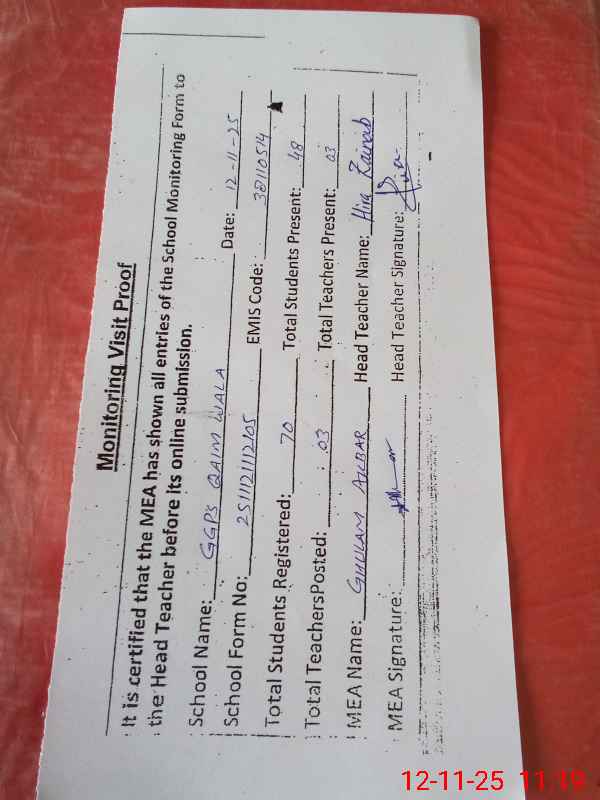 Monitoring Visit Proof
It is certified that the MEA has shown all entries of the School Monitoring Form to
the Head Teacher before its online submission.
School Name: GGPS QAIM WALA Date: 12-11-25
School Form No: 2511121112105 EMIS Code: 38110514
Total Students Registered: 70 Total Students Present: 48
Total TeachersPosted: 03 Total Teachers Present: 03
MEA Name: GHULAM AKBAR Head Teacher Name: Hira Zainab
MEA Signature: Head Teacher Signature: Hira
12-11-25 11:19